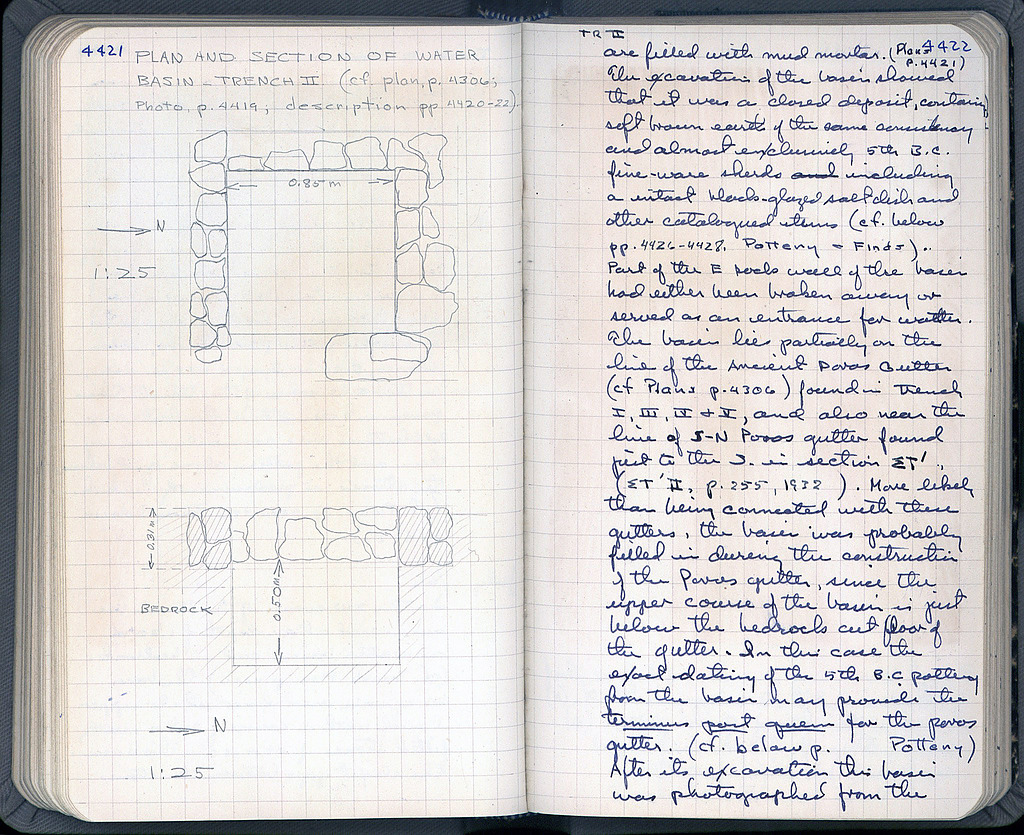 4421 PLAN AND SECTION OF WATER
BASIN - TRENCH II (cf. plan, p. 4306;
Photo, p. 4419; description pp 4420-22).
0.85 m
N
1:25
0.31m
BEDROCK
0.50m
N
1:25
TR II
4422
are filled with mud mortar. (Plans p. 4421)
The excavation of the basin showed
that it was a closed deposit, containing
soft brown earth of the same consistency
and almost exclusively 5th B.C.
fine-ware sherds and including
a intact black-glazed saltdish and
other catalogued items (cf. below
pp. 4426-4428, Pottery - Finds).
Part of the E rock wall of the basin
had either been broken away or
served as an entrance for water.
The basin lies partially on the
line of the Ancient Poros Gutter
(cf Plans p. 4306) found in Trench
I, III, IV + V, and also near the
line of S-N Poros gutter found
just to the S. in section ΣΤ',
(ΣΤ' II, p. 255, 1932 ). More likely
than being connected with these
gutters, the basin was probably
filled in during the construction
of the Poros gutter, since the
upper course of the basin is just
below the bedrock cut floor of
the gutter. In this case the
exact dating of the 5th B.C pottery
from the basin may provide the
terminus post quem for the poros
gutter. (cf. below p. Pottery)
After its excavation this basin
was photographed from the